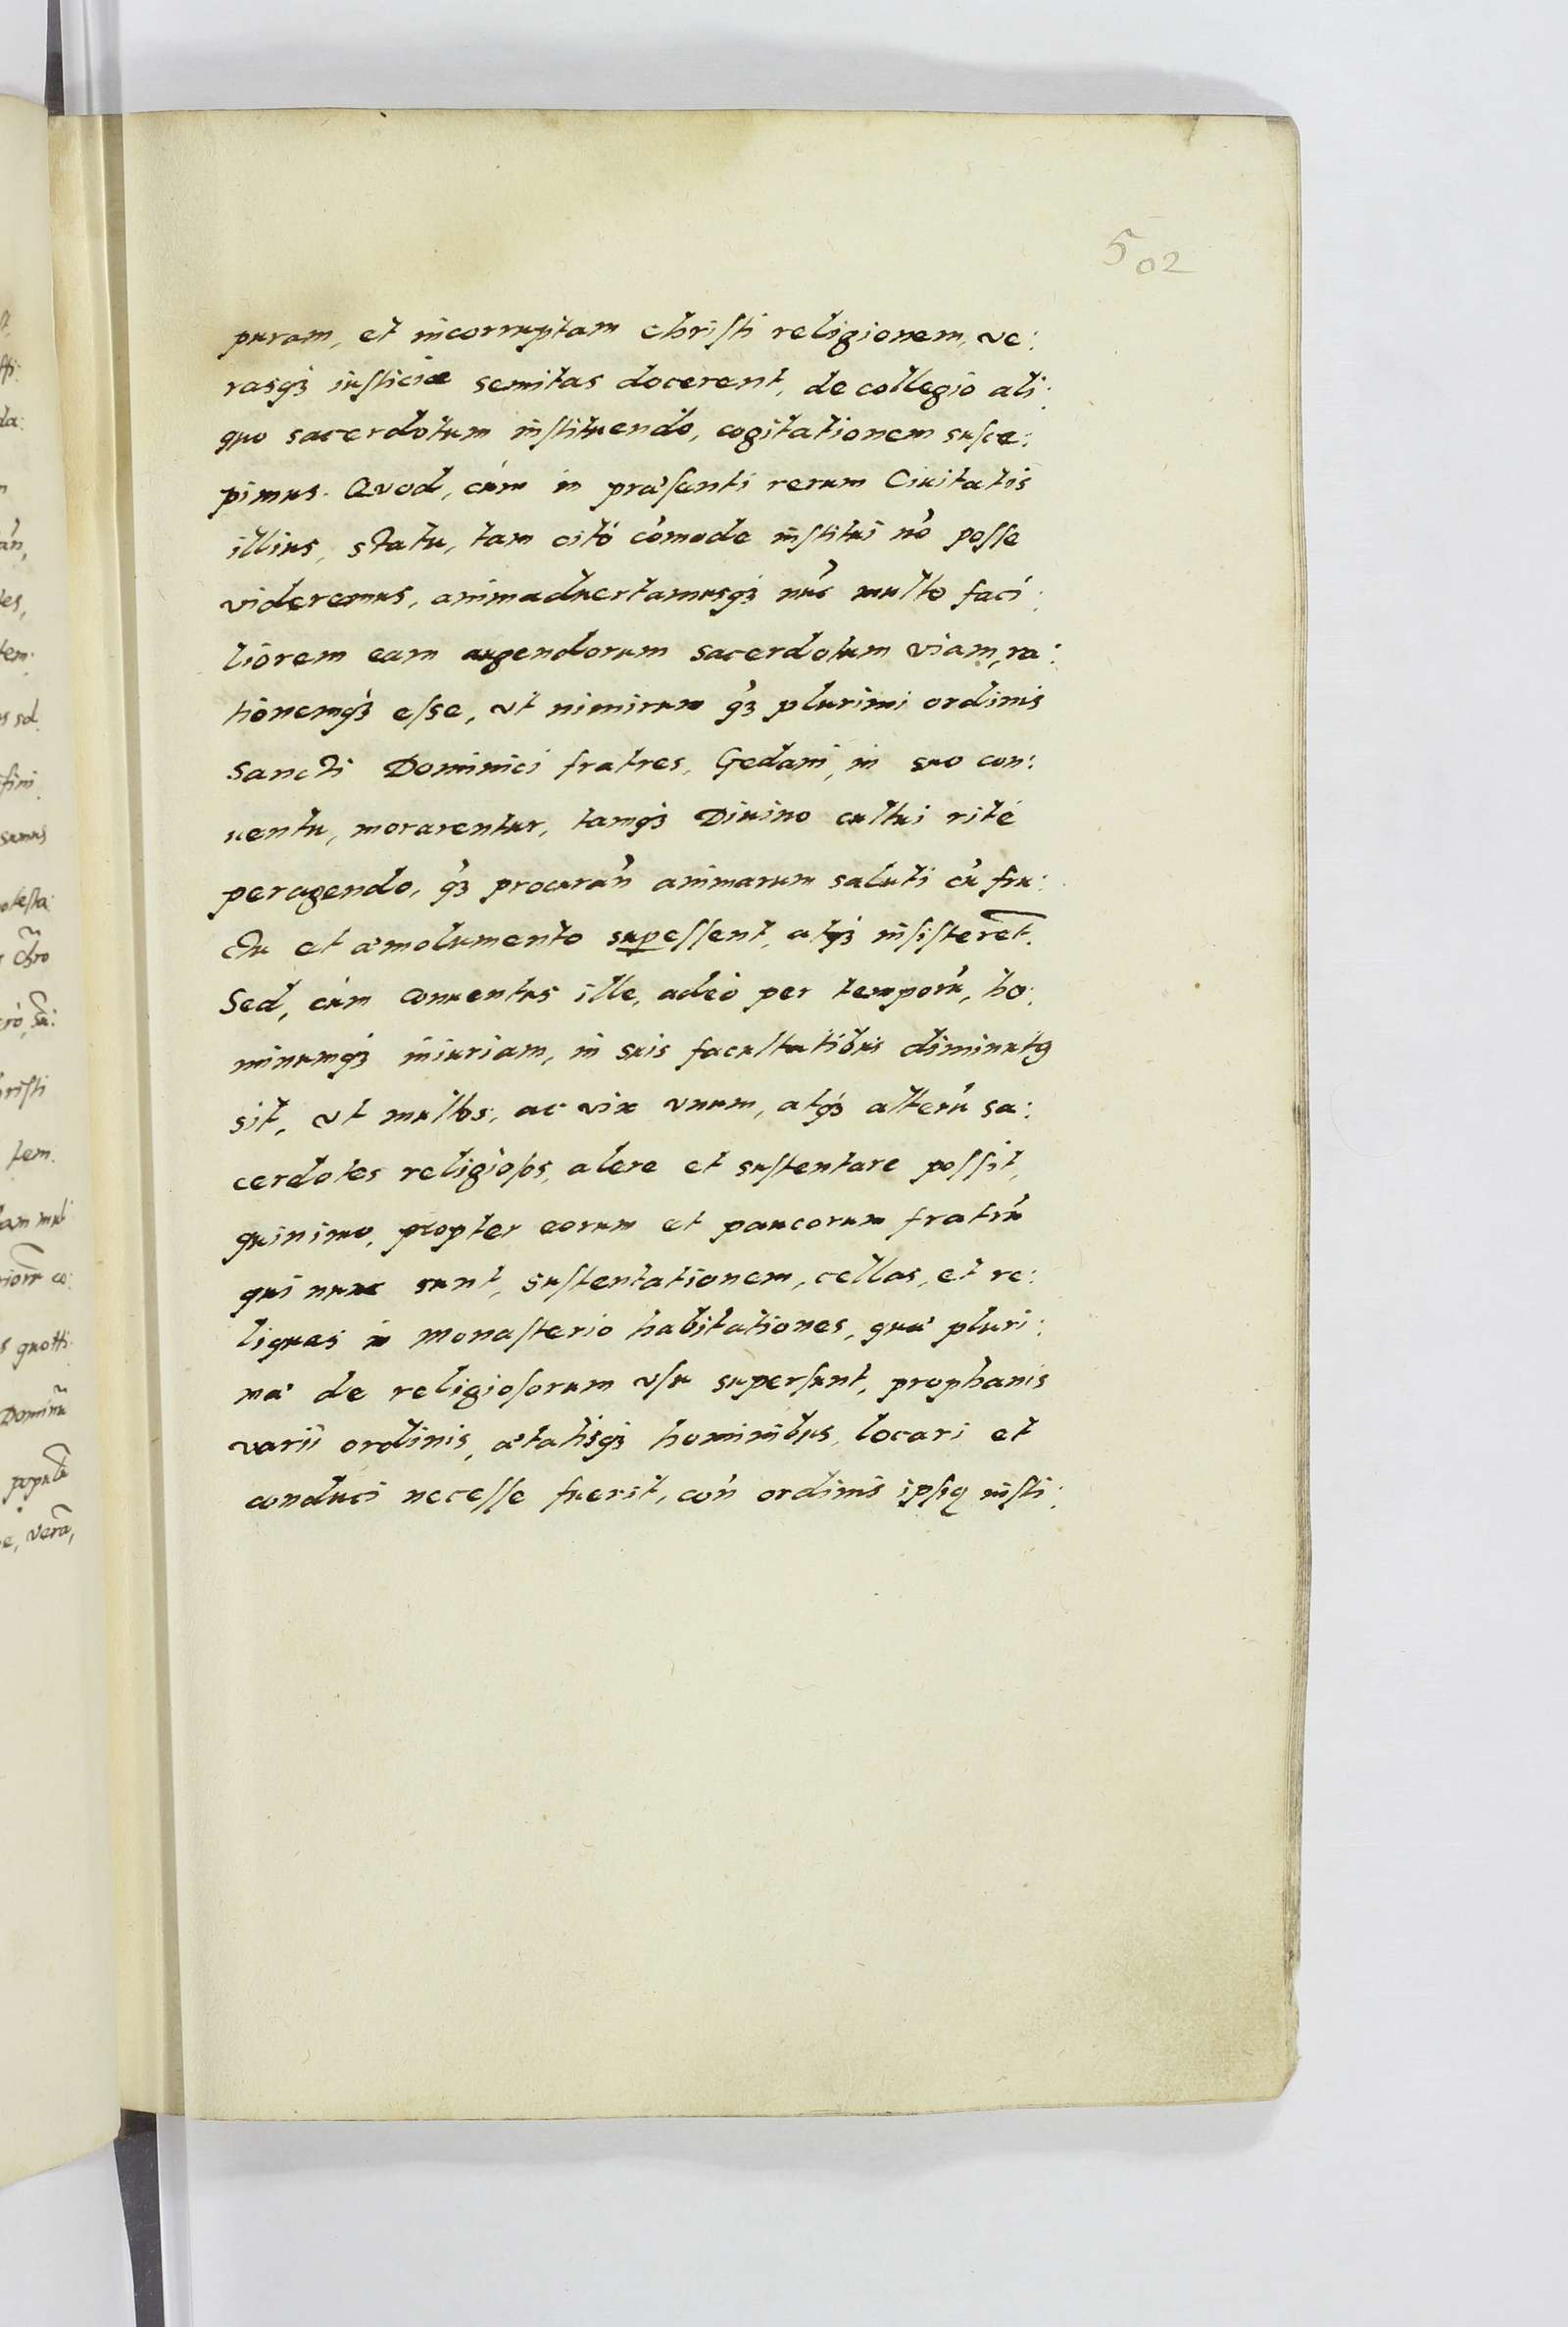 502
puram, et incorruptam Christi religionem, ve:
rasqȝ iusticiæ semitas docerent, de collegio ali:
quo sacerdotum instituendo, cogitationem susce:
pimus. Quod, cùm in præsenti rerum Ciuitatis
illius, statu, tam citò cōmode institui nō posse
videremus, animaduertamusqȝ nūc multo faci:
liorem eam augendorum sacerdotum viam, ra:
tionemqȝ esse, vt nimirum qȝ̄ plurimi ordinis
Sancti Dominici fratres, Gedani, in suo con:
uentu, morarentur, tamqȝ Diuino cultui ritè
peragendo, qȝ̄ procurañ animarum saluti cū fru:
ctu et æmolumento suꝑessent, atqȝ insisterēt.
Sed, cùm Conuentus ille, adeò per temporū, ho:
minumqȝ iniuriam, in suis facultatibus diminutꝰ
sit, vt multos, ac vix vnum, atqȝ alterū sa:
cerdotes religiosos, alere et sustentare possit,
quinimo, propter eorum et paucorum fratrū
qui nunc sunt, sustentationem, cellas, et re:
liquas in monasterio habitationes, quæ pluri:
mæ de religiosorum vsu supersunt, prophanis
varii ordinis, ætatisqȝ hominibus, locari et
conduci necesse fuerit, coñ ordinis ipsiꝰ insti: